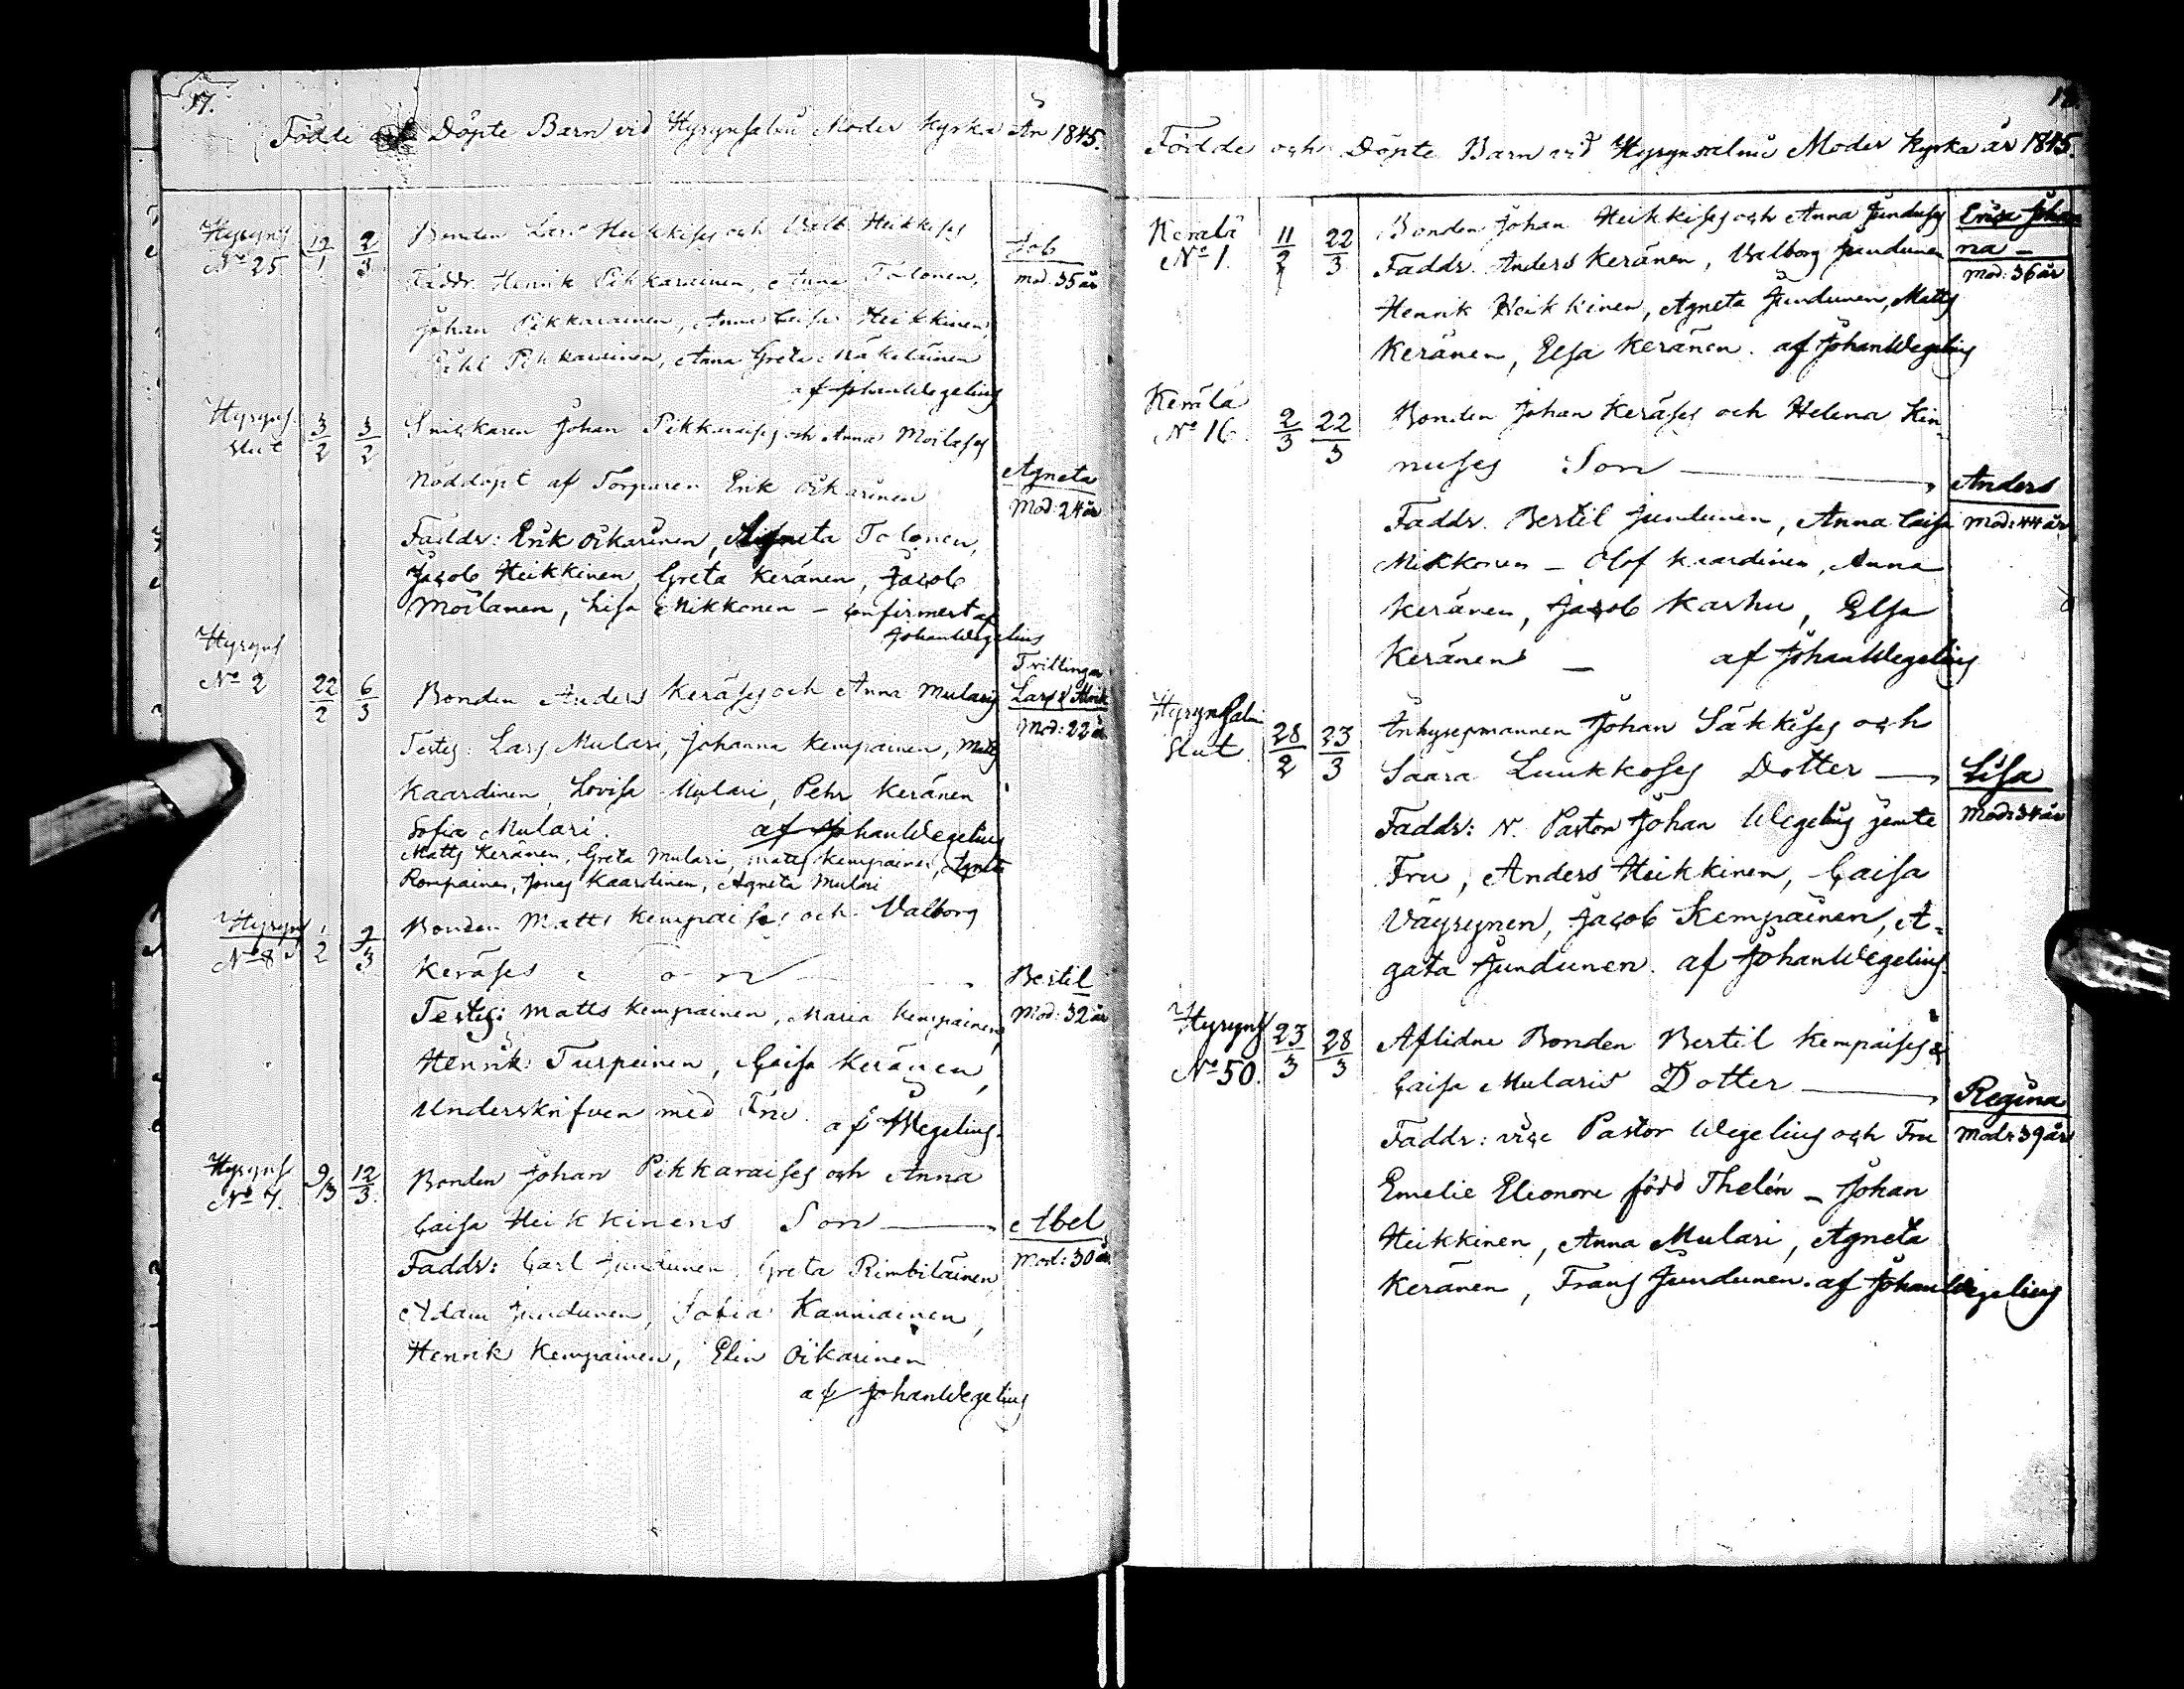 17.
Födde och Döpte Barn vid Hyrynsalmi Moder Kyrka År 1845.
Hyryns
No 25
12/1
2/3
Bonden Lars Heikkises och Valb. Heikkises
Job
mod. 35 år
Faddr. Henrik Pikkarainen, Anna Tolonen,
Johan Pikkarainen, Anna Caisa Heikkinen,
Pikkarainen, Anna Greta Mäkeläinen
af Johan Wegelius
Hyryns
Slut
3/2
3/2
Snickaren Johan Pikkaraises och Anna Moilases
Agneta
Mod: 24 år
Nöddöpt af Torparen Erik Oikarinen
Faddr: Erik Oikarinen, Agneta Tolonen,
Jacob Heikkinen, Greta Keränen, Jacob
Moilanen, Lisa Mikkonen – confirmert af
Johan Wegelius
Hyryns
No 2
22/2
6/3
Bonden Anders Keräses och Anna Mularis
Tvillingar
Lars &
Mod: 22 år
Testes: Lars Mulari, Johanna Kempainen, Matts
Kaardinen, Lovisa Mulari, Pehr Keränen
Sofia Mulari. af Johan Wegelius
Matts Keränen, Greta Mulari, Matts Kempainen, Agneta
Rompainen, Jonas Kaardinen, Agneta Mulari
Hyryns
No 8
1/2
9/3
Bonden Matts Kempaises och Valborg
Keräses Son
Bertil
Mod: 32 år
Testes: Matts Kempainen, Maria Kempainen,
Henrik Turpeinen, Caisa Keränen,
Underskrifven med Fru. af J Wegelius.
Hyryns
No 7.
9/3
12/3.
Bonden Johan Pikkaraises och Anna
Caisa Heikkinens Son —
Abel
Mod: 30 år
Faddr: Carl Jundunen, Greta Rimbiläinen,
Adam Jundunen, Sofia Kanniainen,
Henrik Kempainen, Elin Oikarinen
af Johan Wegelius
Födde och Döpte Barn vid Hyrynsalmi Moder Kyrka år 1845.
Kerälä
No 1.
11/2
22/3
Bonden Johan Heikkises och Anna Junduses
Erica Johan
na –
Mod: 36 år
Faddr. Anders Keränen, Valborg Jundunen
Henrik Heikkinen, Agneta Jundunen, Matts
Keränen, Elsa Keränen. af Johan Wegelius
Kerälä
No 16
2/3
22/3
Bonden Johan Keräses och Helena Kin-
nuses Son —
Anders
Mod: 44 år
Faddr. Bertil Jundunen, Anna Caisa
Mikkonen – Olof Kaardinen, Anna
Keränen, Jacob Karhu, Elsa
Keränen – af Johan Wegelius
Hyrynsalmi
Slut.
28/2
23/3
Inhysesmannen Johan Säkkises och
Saara Luukkoses Dotter —
Lisa
Mod: 34 år
Faddr: N. Pastor Johan Wegelius jemte
Fru, Anders Heikkinen, Caisa
Väyrynen, Jacob Kempainen, A-
gata Jundunen. af Johan Wegelius.
Hyryns
No 50.
23/3
28/3
Aflidne Bonden Bertil Kempaises &
Caisa Mularis Dotter —
Regina
Mod: 39 år
Faddr: vice Pastor Wegelius och Fru
Emelie Eleonore född Thelén – Johan
Heikkinen, Anna Mulari, Agneta
Keränen, Frans Jundunen. af Johan Wegelius